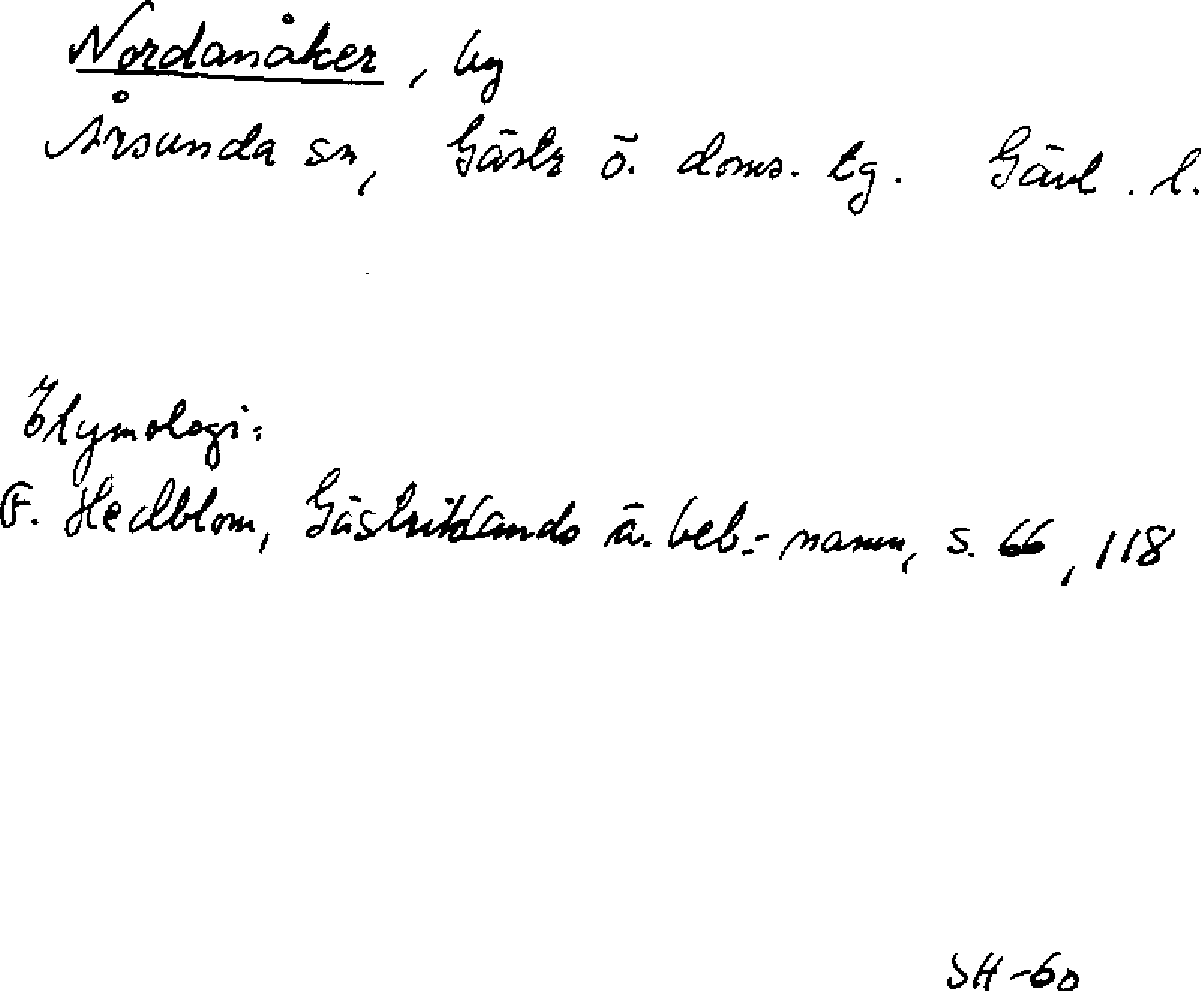 Nordanåker, by
Årsunda sn, Gästr ö. doms. tg. Gävl. l.
Etymologi:
F. Hedblom, Gästriklands ä. beb.-namn, s. 66, 118
SH-60